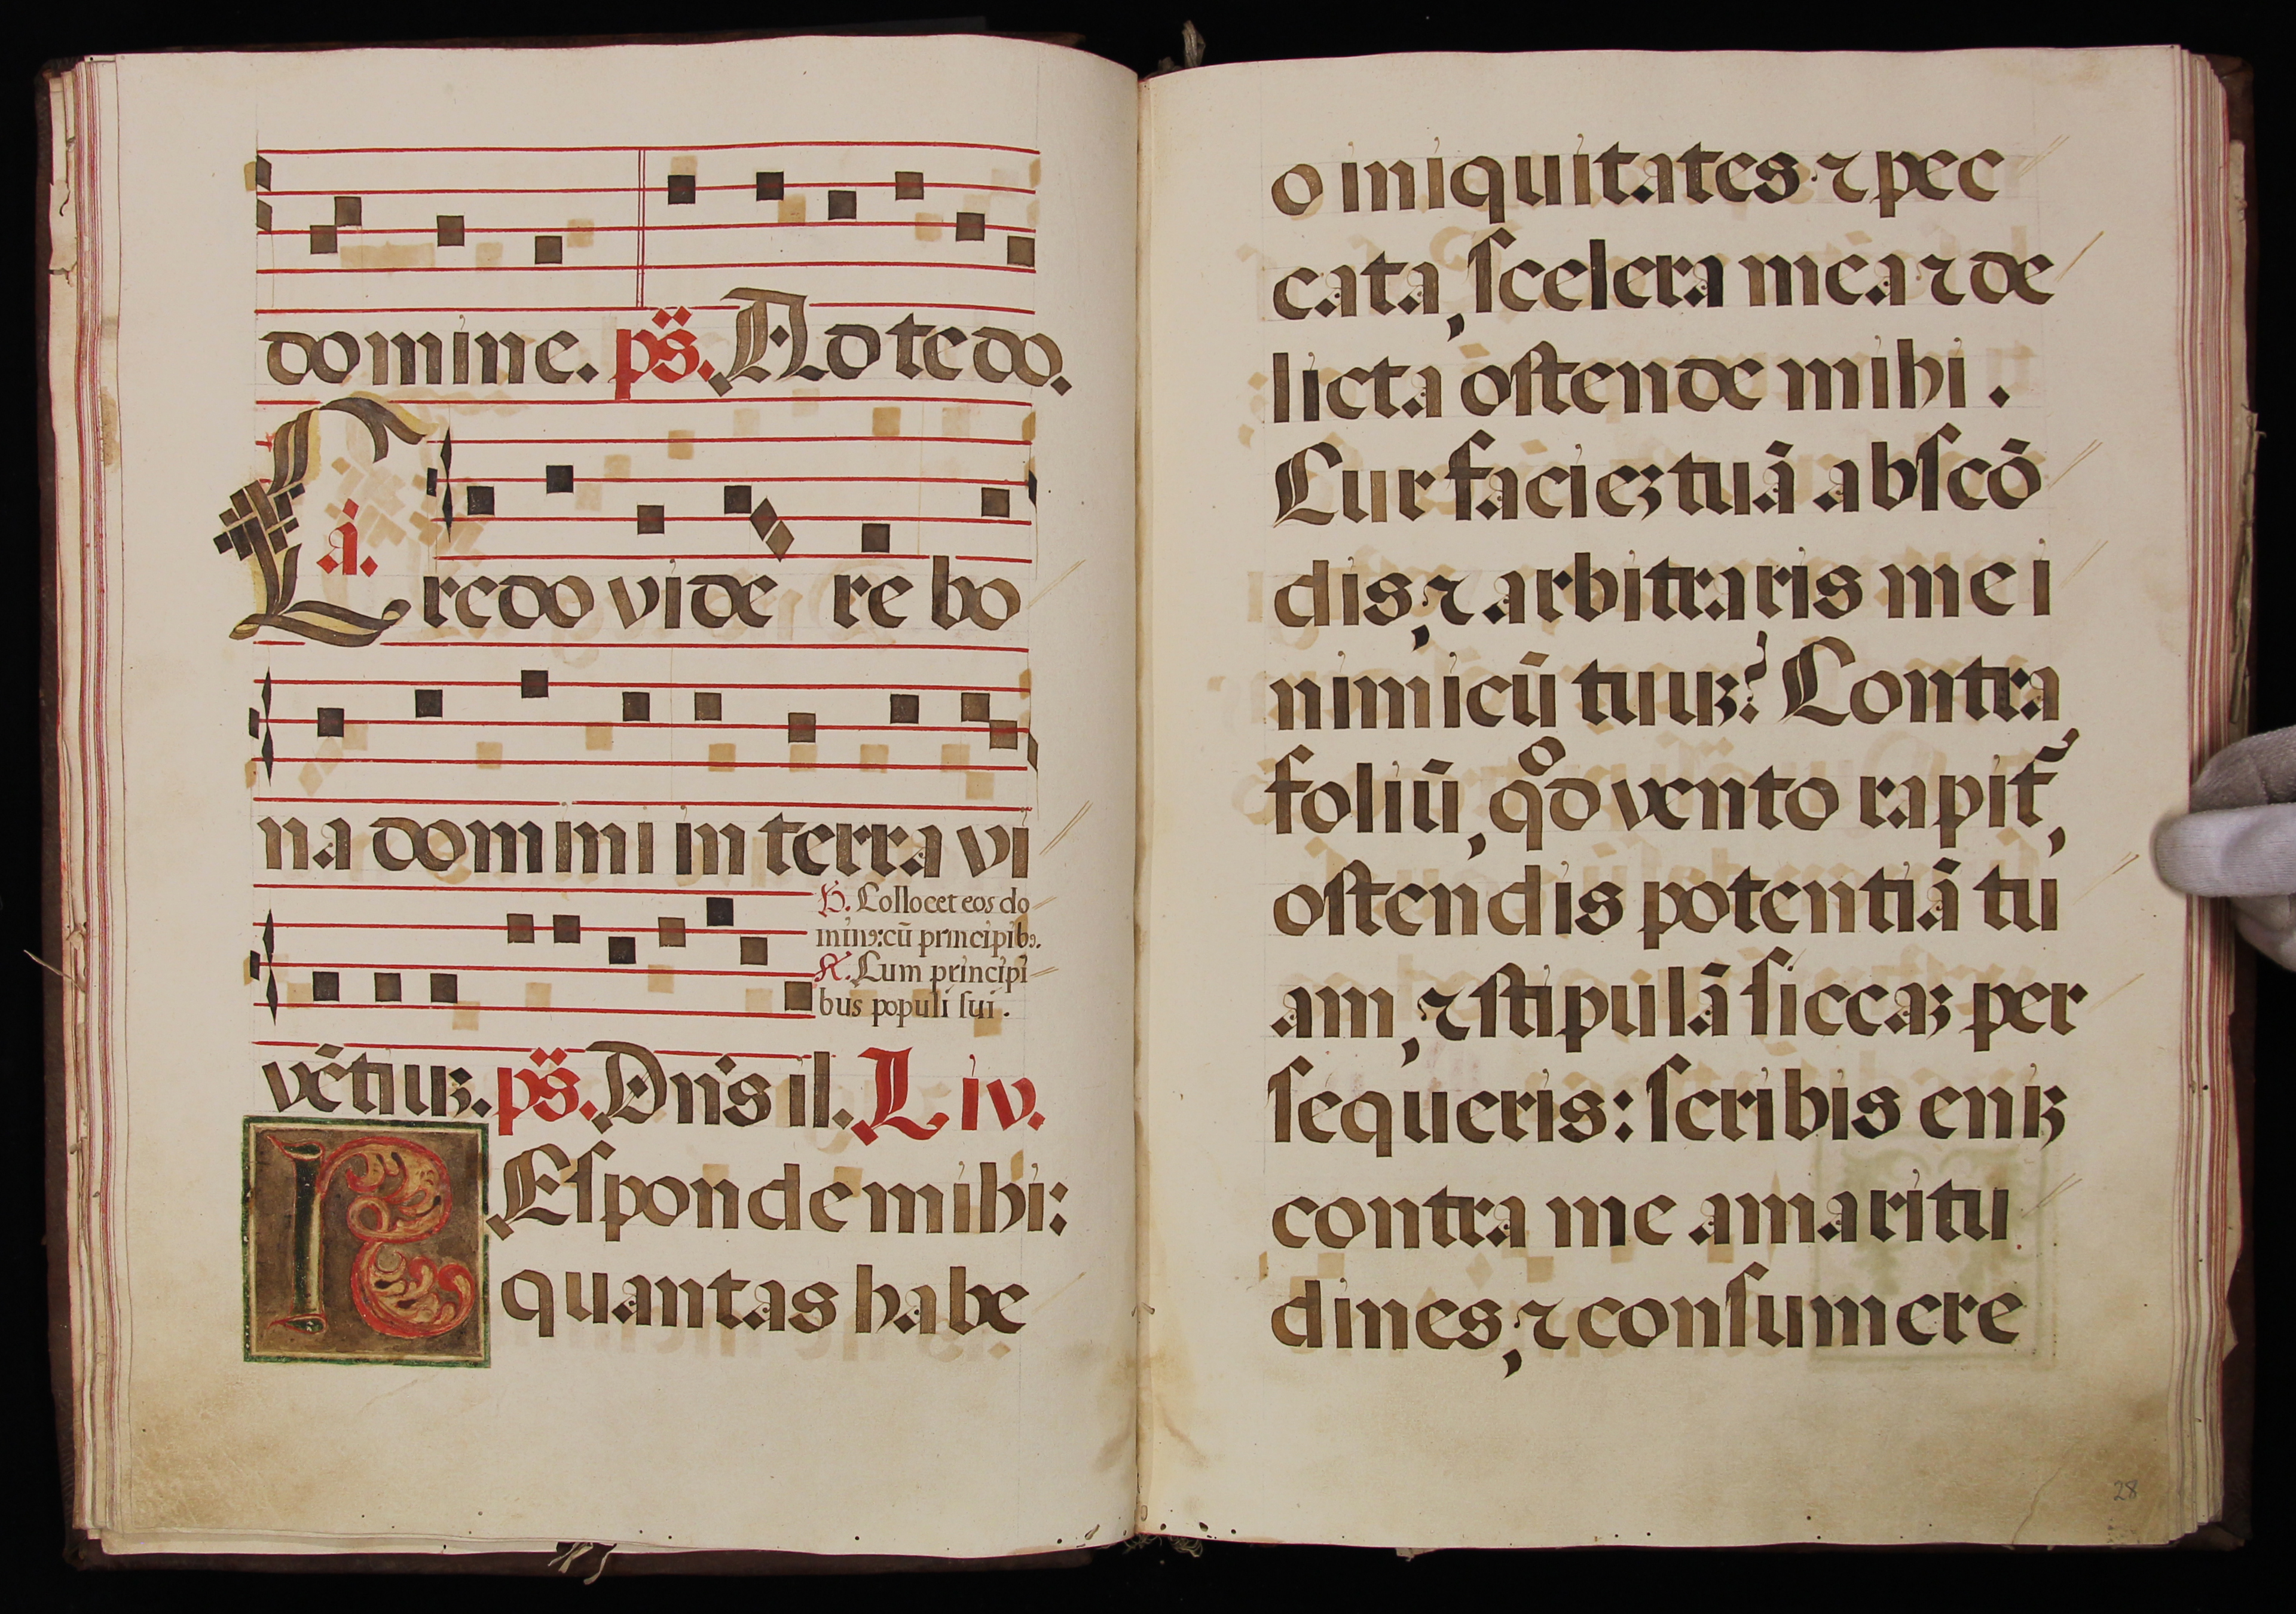 domine. ps̈. Ad te do.
á.
Credo videre bo
na domini in terra vi
℣. Collocet eos do
minꝰ: cū principibꝰ.
℟. Cum principi
bus populi sui.
vētiuꝫ. ps̈. Dn̄s il. L iv.
REſponde mihi:
quantas habe
o iniquitates ⁊ pec
cata, ſcelera mea ⁊ de
licta oſtende mihi.
Cur facieꝫ tuā abſcō
dis, ⁊ arbitraris me i
nimicū tuuꝫ? Contra
foliū, qͦd vento rapit̃,
oſtendis potentiā tu
am, ⁊ ſtipulā ſiccaꝫ per
ſequeris: ſcribis eniꝫ
contra me amaritu
dines, ⁊ conſumere
28